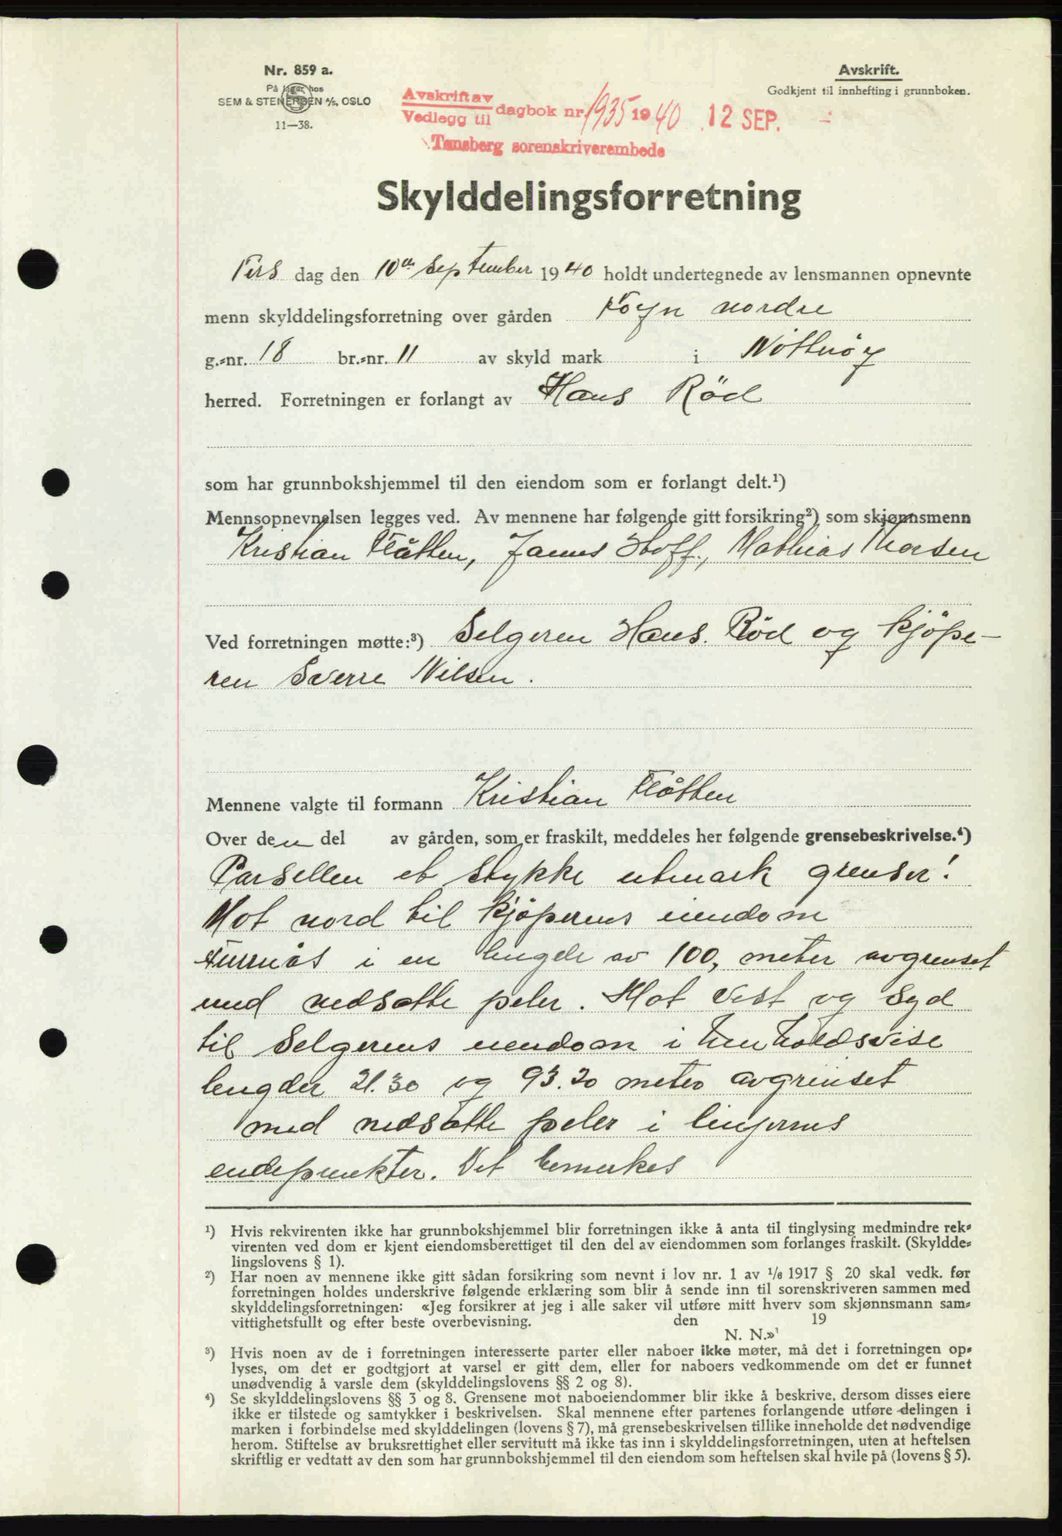 Nr. 859 a.
På lager hos
SEM & STENERSEN A/S, OSLO
11—38.
Avskrift.
Godkjent til innhefting i grunnboken.
Avskrift av
Vedlegg til dagbok nr. 1935 1940 12 SEP.
Tønsberg sorenskriverembede
Skylddelingsforretning
Tirs dag den 10de September 1940 holdt undertegnede av lensmannen opnevnte
menn skylddelingsforretning over gården Föyn nordre
g.-nr. 18 br.-nr. 11 av skyld mark i Nötteröy
herred. Forretningen er forlangt av Hans Rød
som har grunnbokshjemmel til den eiendom som er forlangt delt.¹)
Mennsopnevnelsen legges ved. Av mennene har følgende gitt forsikring²) som skjønnsmenn
Kristian Flåtten, Hoff, Mathias
Ved forretningen møtte:³) Selgeren Hans Rød og kjöpe-
ren Sverre Nilsen.
Mennene valgte til formann Kristian Flåtten
Over den del av gården, som er fraskilt, meddeles her følgende grensebeskrivelse.⁴)
Parsellen et stykke utmark grenser:
Mot nord til kjöperens eiendom
Furuås i en lengde av 100, meter avgrenset
med nedsatte peler. Mot Vest og Syd
til Selgerens eiendom i henholdsvise
lengder 21.30 og 93.20 meter avgrenset
med nedsatte peler i linjernes
endepunkter. Det bemerkes
¹) Hvis rekvirenten ikke har grunnbokshjemmel blir forretningen ikke å anta til tinglysing medmindre rek-
virenten ved dom er kjent eiendomsberettiget til den del av eiendommen som forlanges fraskilt. (Skyldde-
lingslovens § 1).
²) Har noen av mennene ikke gitt sådan forsikring som nevnt i lov nr. 1 av 1/6 1917 § 20 skal vedk. før
forretningen holdes underskrive følgende erklæring som blir å sende inn til sorenskriveren sammen med
skylddelingsforretningen: «Jeg forsikrer at jeg i alle saker vil utføre mitt hverv som skjønnsmann sam-
vittighetsfullt og efter beste overbevisning. den 19
N. N.»
³) Hvis noen av de i forretningen interesserte parter eller naboer ikke møter, må det i forretningen op-
lyses, om det er godtgjort at varsel er gitt dem, eller for naboers vedkommende om det er funnet
unødvendig å varsle dem (skylddelingslovens §§ 2 og 8).
⁴) Se skylddelingslovens §§ 3 og 8. Grensene mot naboeiendommer blir ikke å beskrive, dersom disses eiere
ikke er tilstede og samtykker i beskrivelsen. Skal mennene efter partenes forlangende utføre delingen i
marken i forbindelse med skylddelingen (lovens § 7), må grensebeskrivelsen tillike inneholde det nødvendige
herom. Stiftelse av bruksrettighet eller servitutt må ikke tas inn i skylddelingsforretningen, uten at heftelsen
skriftlig er vedtatt av den som har grunnbokshjemmel til den eiendom som heftelsen skal hvile på (lovens § 5).